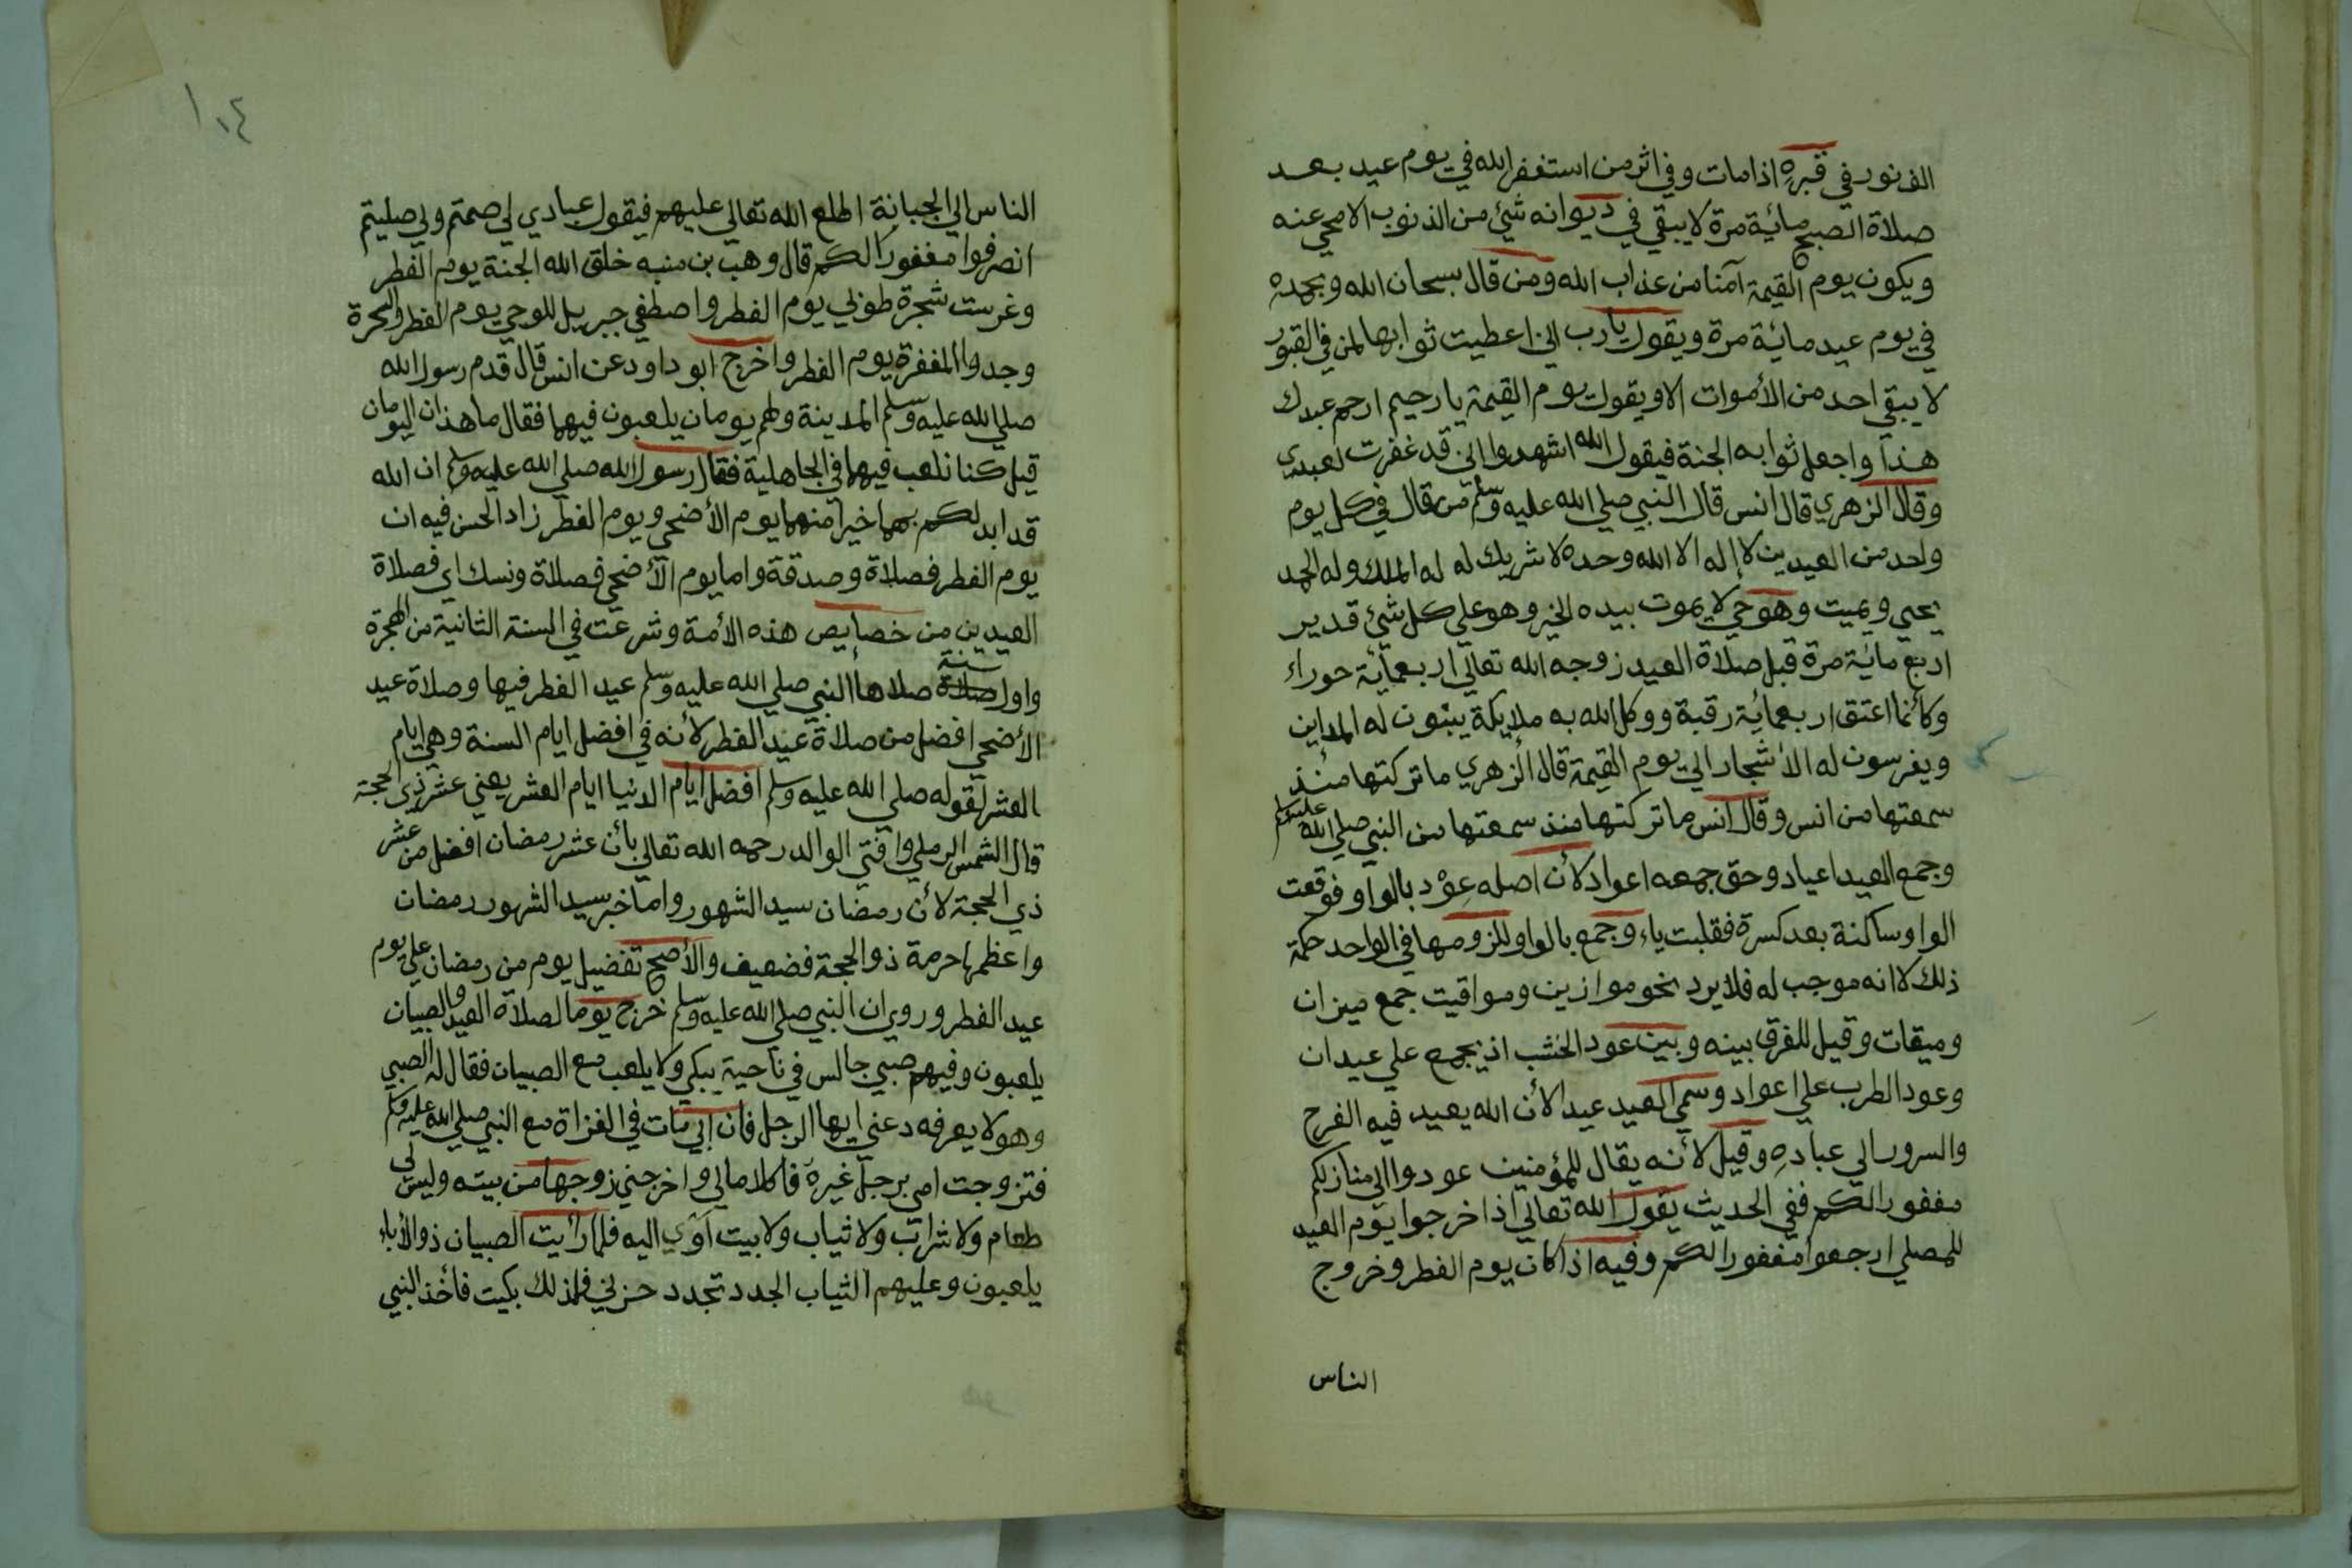 الف نور في قبره اذا مات وفي اثر من استغفر الله في يوم عيد بعد
صلاة الصبح مائية مرة لا يبقي في ديوانه شيئ من الذنوب الا محي عنه
ويكون يوم القيمة آمنا من عذاب الله ومن قال سبحان الله وبحمده
في يوم عيد مائية مرة ويقول يا رب اني اعطيت ثوابها لمن في القبور
لا يبقي احد من الأموات الا ويقول يوم القيمة يا رحيم ارحم عبدك
هذا واجعل ثوابه الجنة فيقول الله اشهدوا اني قد غفرت لعبدي
وقال الزهري قال انس قال النبي صلي الله عليه وسلم من قال في كل يوم
واحد من العيدين لا إله الا الله وحده لا شريك له له الملك وله الحمد
يحيي ويميت وهو حي لا يموت بيده الخير وهو علي كل شيئ قدير
اربع مائية مرة قبل صلاة العيد زوجه الله تعالي اربعمائية حوراء
وكأنما اعتق اربعمائية رقبة ووكل الله به ملايكة يبنون له المداين
ويغرسون له الأشجار الي يوم القيمة قال الزهري ما تركتها منذ
سمعتها من انس وقال انس ما تركتها منذ سمعتها من النبي صلي الله عليه وسلم
وجمع العيد اعياد وحق جمعه اعواد لأن اصله عِوْد بالواو فوقعت
الواو ساكنة بعد كسرة فقلبت ياء وجمع بالواو للزومها في الواحد حكمة
ذلك لا انه موجب له فلا يرد نحو موازين ومواقيت جمع ميزان
وميقات وقيل للفرق بينه وبين عود الخشب اذ يجمع علي عيدان
وعود الطرب علي اعواد وسمي العيد عيدا لأن الله يعيد فيه الفرح
والسرور الي عباده وقيل لأنه يقال للمؤمنين عودوا الي منازلكم
مغفورا لكم ففي الحديث يقول الله تعالي اذا خرجوا يوم العيد
للمصلي ارجعوا مغفورا لكم وفيه اذا كان يوم الفطر وخروج
الناس
١٠٤
الناس الي الجبانة اطلع الله تعالي عليهم فيقول عبادي لي صمتم ولي صليتم
انصرفوا مغفورا لكم قال وهب بن منبه خلق الله الجنة يوم الفطر
وغرست شجرة طوبي يوم الفطر واصطفي جبريل للوحي يوم الفطر والسحرة
وجدوا المغفرة يوم الفطر واخرج ابو داود عن انس قال قدم رسول الله
صلي الله عليه وسلم المدينة ولهم يومان يلعبون فيهما فقال ما هذان اليومان
قيل كنا نلعب فيهما في الجاهلية فقال رسول الله صلي الله عليه وسلم ان الله
قد ابدلكم بهما خيرا منهما يوم الأضحي ويوم الفطر زاد الحسن فيه ان
يوم الفطر فصلاة وصدقة واما يوم الأضحي فصلاة ونسك اي فصلاة
العيدين من خصايص هذه الأمة وشرعت في السنة الثانية من الهجرة
واول صلاة سنة صلاها النبي صلي الله عليه وسلم عيد الفطر فيها وصلاة عيد
الأضحي افضل من صلاة عيد الفطر لأنه في افضل ايام السنة وهي ايام
العشر لقوله صلي الله عليه وسلم افضل ايام الدنيا ايام العشر يعني عشر ذي الحجة
قال الشمس الرملي وافتي الوالد رحمه الله تعالي بأن عشر رمضان افضل من عشر
ذي الحجة لأن رمضان سيد الشهور واما خبر سيد الشهور رمضان
واعظمها حرمة ذو الحجة فضعيف والأصح تفضيل يوم من رمضان علي يوم
عيد الفطر وروي ان النبي صلي الله عليه وسلم خرج يوما لصلاة العيد والصبيان
يلعبون وفيهم صبي جالس في ناحية يبكي ولا يلعب مع الصبيان فقال له الصبي
وهو لا يعرفه دعني ايها الرجل فان ابي مات في الغزاة مع النبي صلي الله عليه وسلم
فتزوجت امي برجل غيره فاكلا مالي واخرجني زوجها من بيته وليس لي
طعام ولا شراب ولا ثياب ولا بيت آوي اليه فلما رأيت الصبيان ذو الأباء
يلعبون وعليهم الثياب الجدد تجدد حزني فلذلك بكيت فأخذ النبي